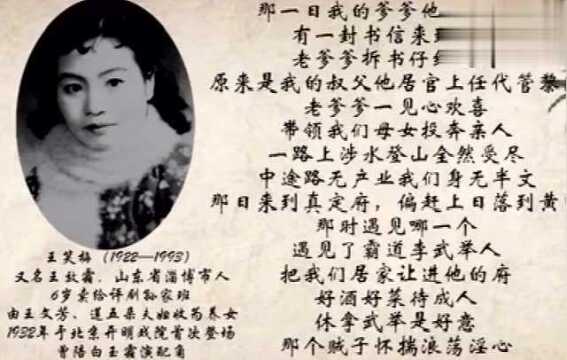 那一日我的爹爹他
有一封书信来
老爹爹拆书仔
原来是我的叔父他居官上任代管黎
老爹爹一见心欢喜
带领我们母女投奔亲人
一路上涉水登山全然受尽
中途路无产业我们身无半文
那日来到真定府，偏赶上日落到黄
那时遇见哪一个
遇见了霸道李武举人
把我们居家让进他的府
好酒好菜待成人
休拿武举是好意
那个贼子怀揣浪荡淫心
王笑梅（1922—1993）
又名王霜，山东省淄博市人
6岁卖给评剧孙家班
由王文芳、五朵夫妇收为养女
1932年于北京开明戏院首次登场
曾陪白玉霜演配角